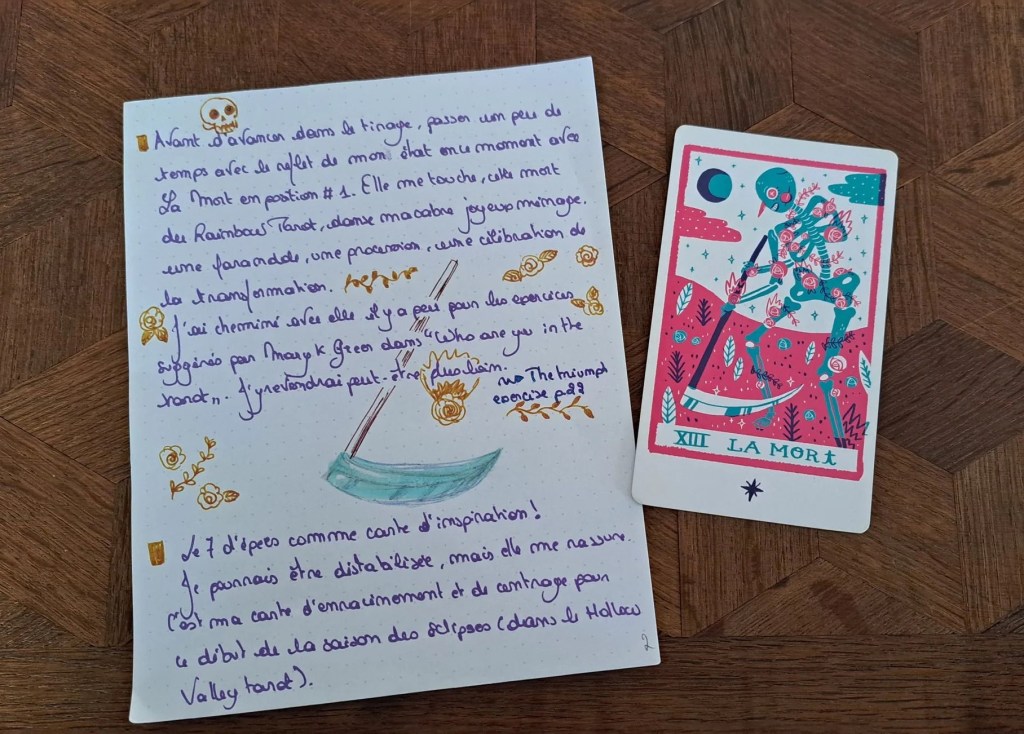 Avant d'avancer dans le tirage, passer un peu de
temps avec le reflet de mon état en ce moment avec
La Mort en position #1. Elle me touche, cette mort
du Rainbow Tarot, danse macabre joyeuse
une farandole, une procession, une célébration de
la transformation.
J'ai cheminé avec elle il y a peu pour les exercices
suggérés par Mary K Green dans "Who are you in the
tarot". J'y reviendrai peut-être plus loin.
The triumph
exercise p.22
Le 7 d'épées comme carte d'inspiration !
Je pourrais être déstabilisée, mais elle me rassure.
C'est ma carte d'enracinement et de centrage pour
ce début de la saison des éclipses (dans le Hollow
Valley tarot).
2
XIII LA MORT